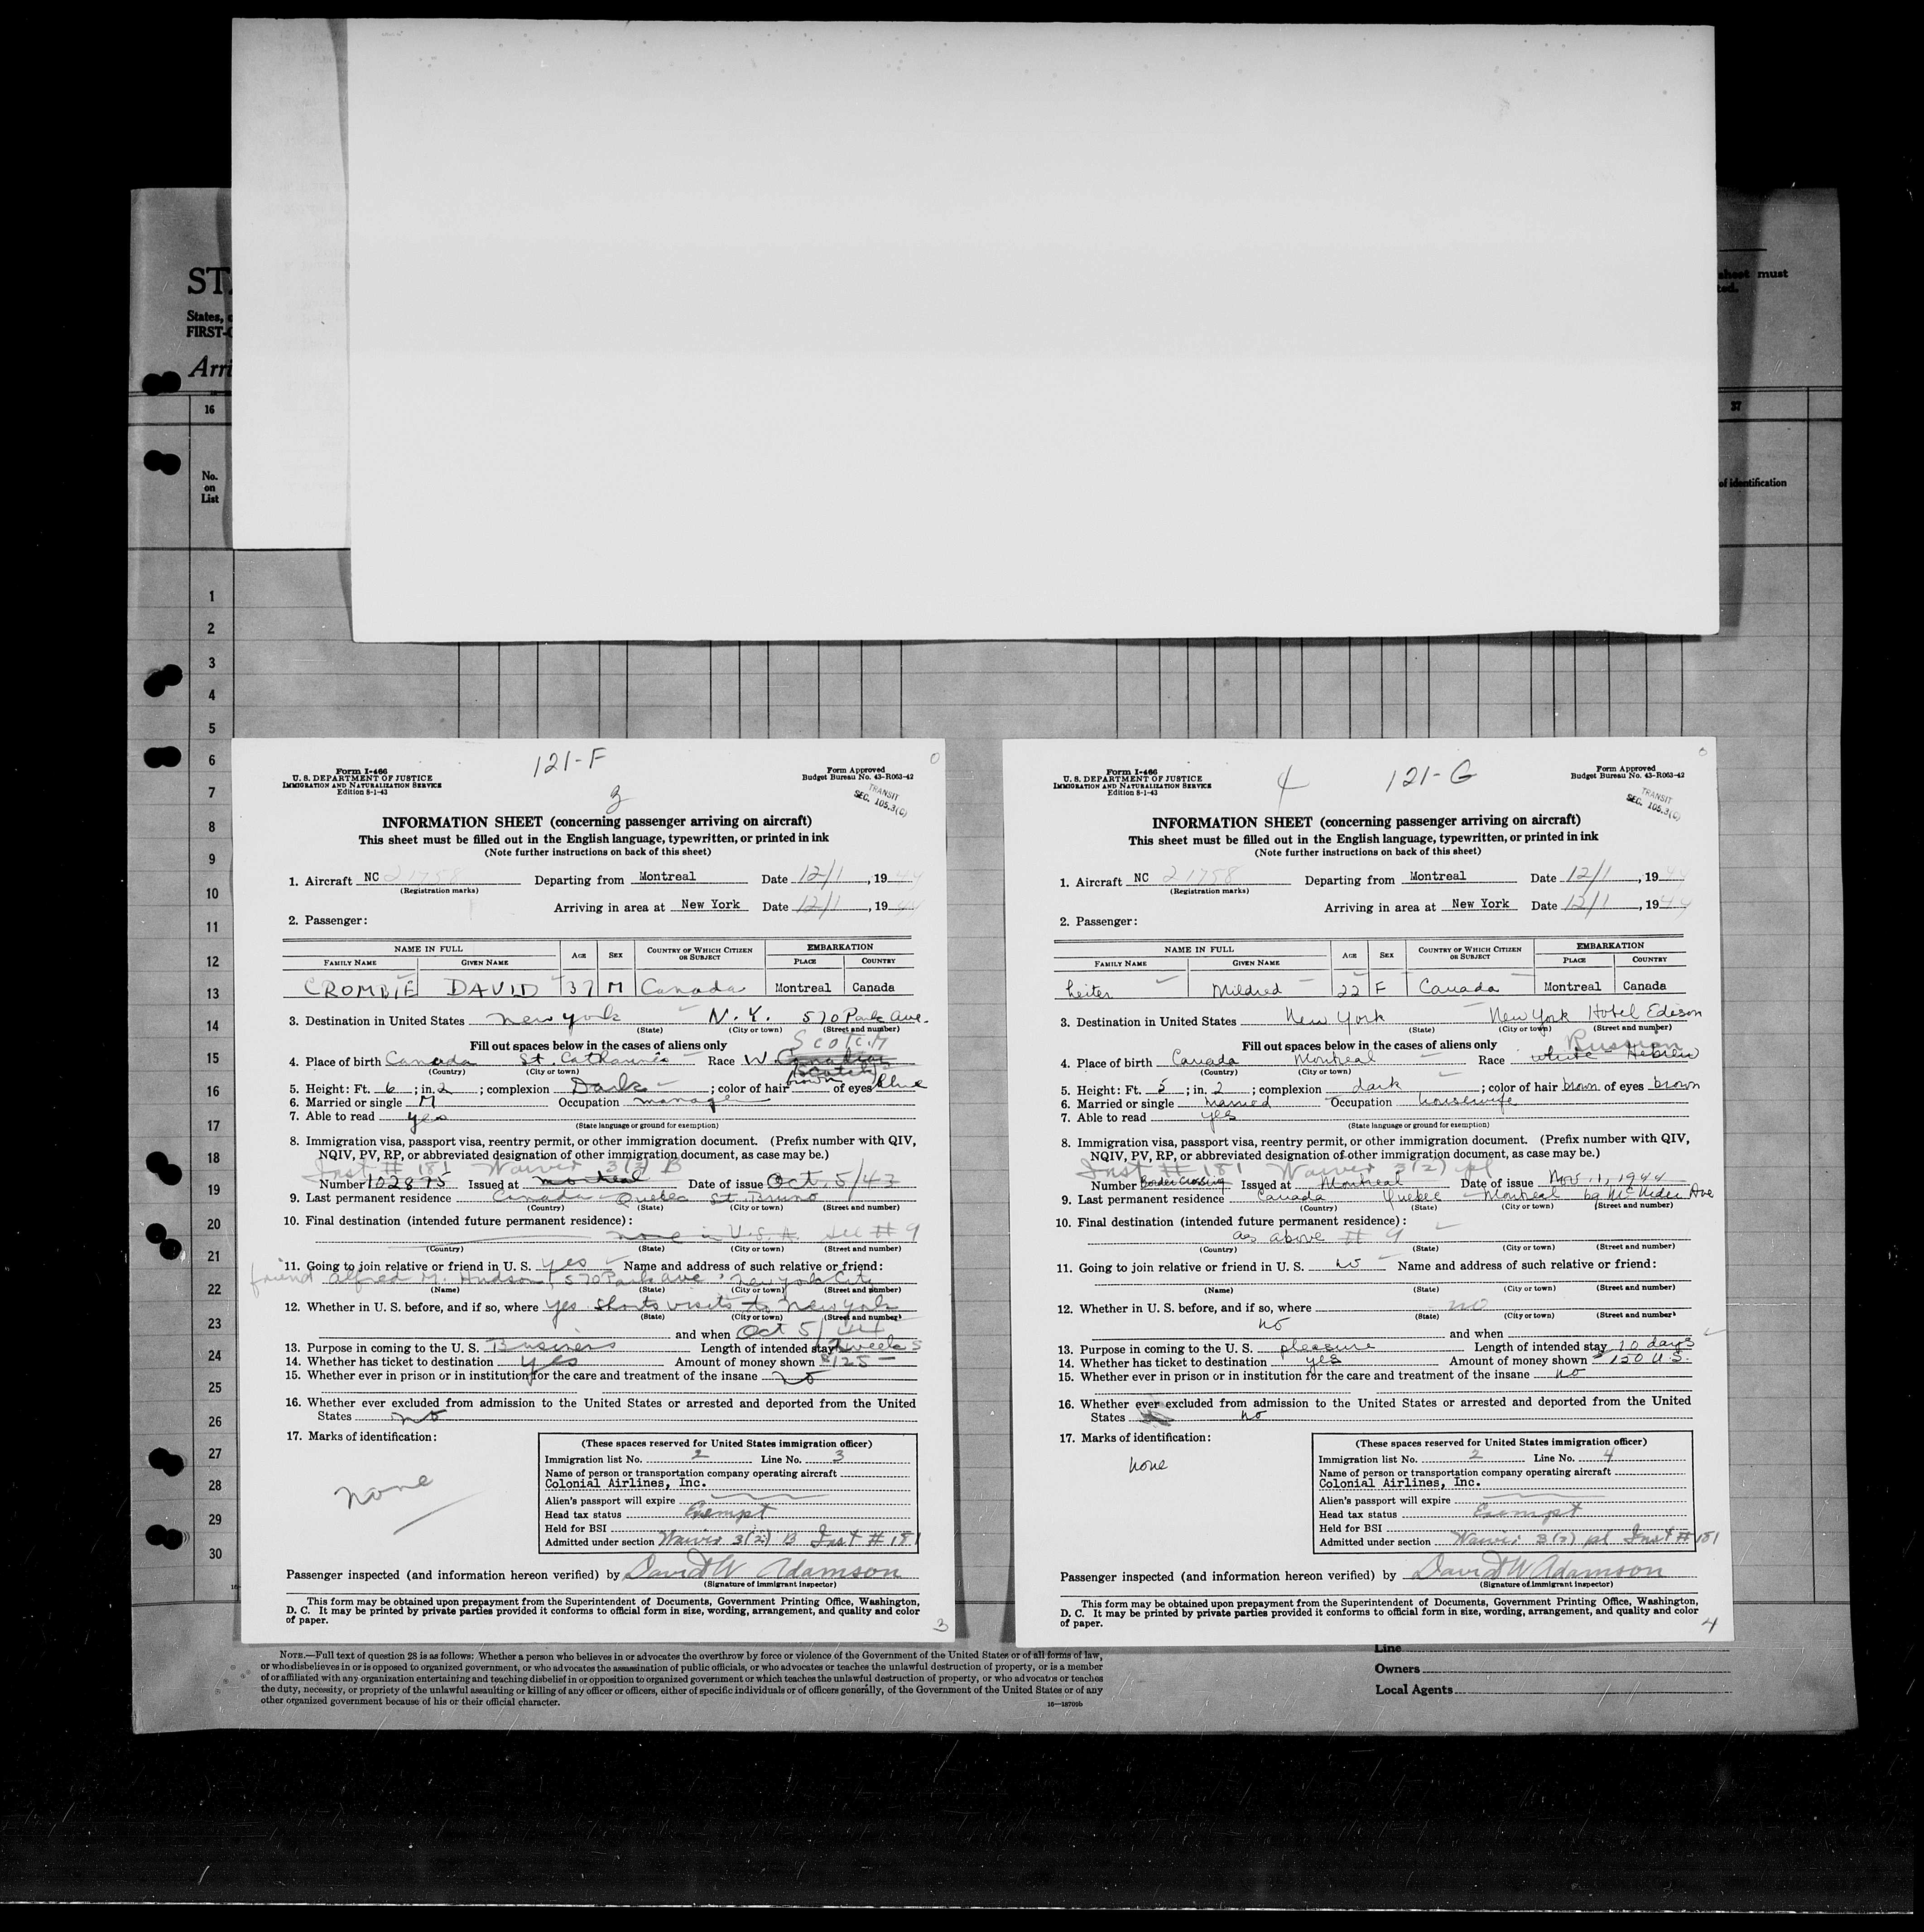 ST
States,
FIRST-
Arri
sheet must
16
37
No.
on
List
of identification
1
2
3
4
5
6
7
8
9
10
11
12
13
14
15
16
17
18
19
20
21
22
23
24
25
26
27
28
29
30
Form I-466
U. S. DEPARTMENT OF JUSTICE
IMMIGRATION AND NATURALIZATION SERVICE
Edition 8-1-43
121-F
3
Form Approved
Budget Bureau No. 43-R063-42
TRANSIT
SEC. 105.3(C)
INFORMATION SHEET (concerning passenger arriving on aircraft)
This sheet must be filled out in the English language, typewritten, or printed in ink
(Note further instructions on back of this sheet)
1. Aircraft NC 21758 Departing from Montreal Date 12/1, 1944
(Registration marks)
Arriving in area at New York Date 12/1, 1944
2. Passenger:
NAME IN FULL AGE SEX COUNTRY OF WHICH CITIZEN OR SUBJECT EMBARKATION
FAMILY NAME GIVEN NAME PLACE COUNTRY
CROMBIE DAVID 37 M Canada Montreal Canada
3. Destination in United States New York N.Y. 570 Park Ave.
(State) (City or town) (Street and number)
Fill out spaces below in the cases of aliens only
SCOTCH
4. Place of birth Canada St. Catharines Race W. Canadian
(Country) (City or town) (Scotch)
5. Height: Ft. 6; in. 2; complexion Dark; color of hair brown of eyes blue
6. Married or single M Occupation manager
7. Able to read yes
(State language or ground for exemption)
8. Immigration visa, passport visa, reentry permit, or other immigration document. (Prefix number with QIV,
NQIV, PV, RP, or abbreviated designation of other immigration document, as case may be.)
Inst # 181 Waiver 3(2) B
Number 102875 Issued at Montreal Date of issue Oct. 5/43
9. Last permanent residence Canada Quebec St. Bruno
(Country) (State) (City or town) (Street and number)
10. Final destination (intended future permanent residence):
none in U.S.A. See # 9
(Country) (State) (City or town) (Street and number)
11. Going to join relative or friend in U. S. yes Name and address of such relative or friend:
friend Alfred M. Hudson 570 Park Ave, New York City
(Name) (State) (City or town) (Street and number)
12. Whether in U. S. before, and if so, where yes shorts visits to New York
(State) (City or town) (Street and number)
and when Oct 5/44
13. Purpose in coming to the U. S. Business Length of intended stay 2 weeks
14. Whether has ticket to destination yes Amount of money shown $125-
15. Whether ever in prison or in institution for the care and treatment of the insane no
16. Whether ever excluded from admission to the United States or arrested and deported from the United
States no
17. Marks of identification:
none
(These spaces reserved for United States immigration officer)
Immigration list No. 2 Line No. 3
Name of person or transportation company operating aircraft
Colonial Airlines, Inc.
Alien's passport will expire
Head tax status Exempt
Held for BSI
Admitted under section Waiver 3(2) B Inst # 181
Passenger inspected (and information hereon verified) by David W Adamson
(Signature of immigrant inspector)
This form may be obtained upon prepayment from the Superintendent of Documents, Government Printing Office, Washington,
D. C. It may be printed by private parties provided it conforms to official form in size, wording, arrangement, and quality and color
of paper.
3
Form I-466
U. S. DEPARTMENT OF JUSTICE
IMMIGRATION AND NATURALIZATION SERVICE
Edition 8-1-43
4
121-G
Form Approved
Budget Bureau No. 43-R063-42
TRANSIT
SEC. 105.3(C)
INFORMATION SHEET (concerning passenger arriving on aircraft)
This sheet must be filled out in the English language, typewritten, or printed in ink
(Note further instructions on back of this sheet)
1. Aircraft NC 21758 Departing from Montreal Date 12/1, 1944
(Registration marks)
Arriving in area at New York Date 12/1, 1944
2. Passenger:
NAME IN FULL AGE SEX COUNTRY OF WHICH CITIZEN OR SUBJECT EMBARKATION
FAMILY NAME GIVEN NAME PLACE COUNTRY
Leiter Mildred 22 F Canada Montreal Canada
3. Destination in United States New York New York Hotel Edison
(State) (City or town) (Street and number)
Fill out spaces below in the cases of aliens only
Russian
4. Place of birth Canada Montreal Race white Hebrew
(Country) (City or town)
5. Height: Ft. 5; in. 2; complexion dark; color of hair brown of eyes brown
6. Married or single married Occupation housewife
7. Able to read yes
(State language or ground for exemption)
8. Immigration visa, passport visa, reentry permit, or other immigration document. (Prefix number with QIV,
NQIV, PV, RP, or abbreviated designation of other immigration document, as case may be.)
Inst # 181 Waiver 3(2) pl
Number Border Crossing Issued at Montreal Date of issue Nov. 1, 1944
9. Last permanent residence Canada Quebec Montreal 69 McNider Ave
(Country) (State) (City or town) (Street and number)
10. Final destination (intended future permanent residence):
as above # 9
(Country) (State) (City or town) (Street and number)
11. Going to join relative or friend in U. S. no Name and address of such relative or friend:
(Name) (State) (City or town) (Street and number)
12. Whether in U. S. before, and if so, where no
(State) (City or town) (Street and number)
no and when
13. Purpose in coming to the U. S. pleasure Length of intended stay 10 days
14. Whether has ticket to destination yes Amount of money shown $150 U.S.
15. Whether ever in prison or in institution for the care and treatment of the insane no
16. Whether ever excluded from admission to the United States or arrested and deported from the United
States no
17. Marks of identification:
none
(These spaces reserved for United States immigration officer)
Immigration list No. 2 Line No. 4
Name of person or transportation company operating aircraft
Colonial Airlines, Inc.
Alien's passport will expire
Head tax status Exempt
Held for BSI
Admitted under section Waiver 3(2) pl Inst # 181
Passenger inspected (and information hereon verified) by David W Adamson
(Signature of immigrant inspector)
This form may be obtained upon prepayment from the Superintendent of Documents, Government Printing Office, Washington,
D. C. It may be printed by private parties provided it conforms to official form in size, wording, arrangement, and quality and color
of paper.
4
NOTE.—Full text of question 28 is as follows: Whether a person who believes in or advocates the overthrow by force or violence of the Government of the United States or of all forms of law,
or who disbelieves in or is opposed to organized government, or who advocates the assassination of public officials, or who advocates or teaches the unlawful destruction of property, or is a member
of or affiliated with any organization entertaining and teaching disbelief in or opposition to organized government or which teaches the unlawful destruction of property, or who advocates or teaches
the duty, necessity, or propriety of the unlawful assaulting or killing of any officer or officers, either of specific individuals or of officers generally, of the Government of the United States or of any
other organized government because of his or their official character.
16—18709b
Line
Owners
Local Agents